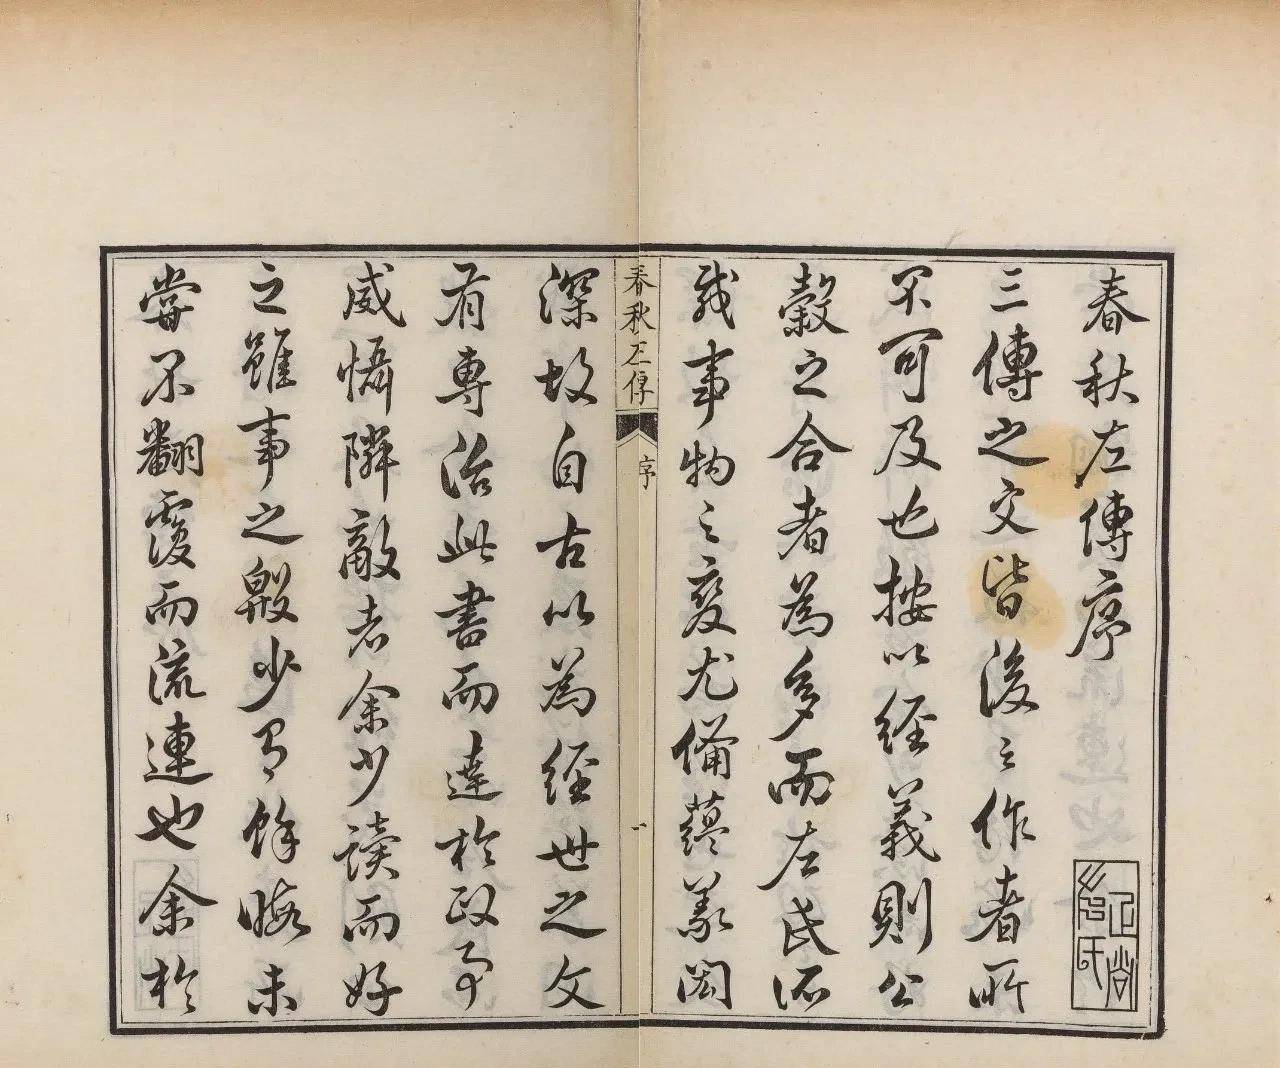 春秋左傳序
三傳之文皆後之作者所
不可及也按以經義則公
穀之合者為多而左氏所
載事物之變尤備蘊義閎
春秋左傳
序
一
深故自古以為經世之文
有專治此書而達於政事
威懾隣敵者余少讀而好
之雖事之殷少有餘暇未
嘗不翻覆而流連也余於